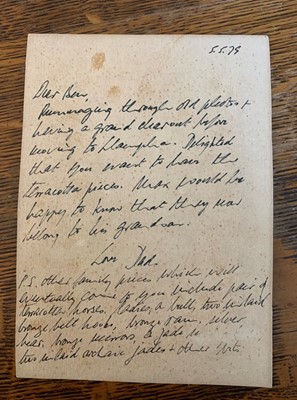 5.5.79
Dear Ben,
Rummaging through old photos +
having a grand clearout before
moving to Llangpha. Delighted
that you want to have the
terracotta pieces. Max would be
happy to know that they now
belong to his grandson.
Love Dad.
P.S. other family pieces which will
eventually come to you include pair of
terracotta horses, ladies, a bull, two
bronze belt hooks, bronze ram, silver
bear, bronze mirrors, & jade
two archaic jades + other